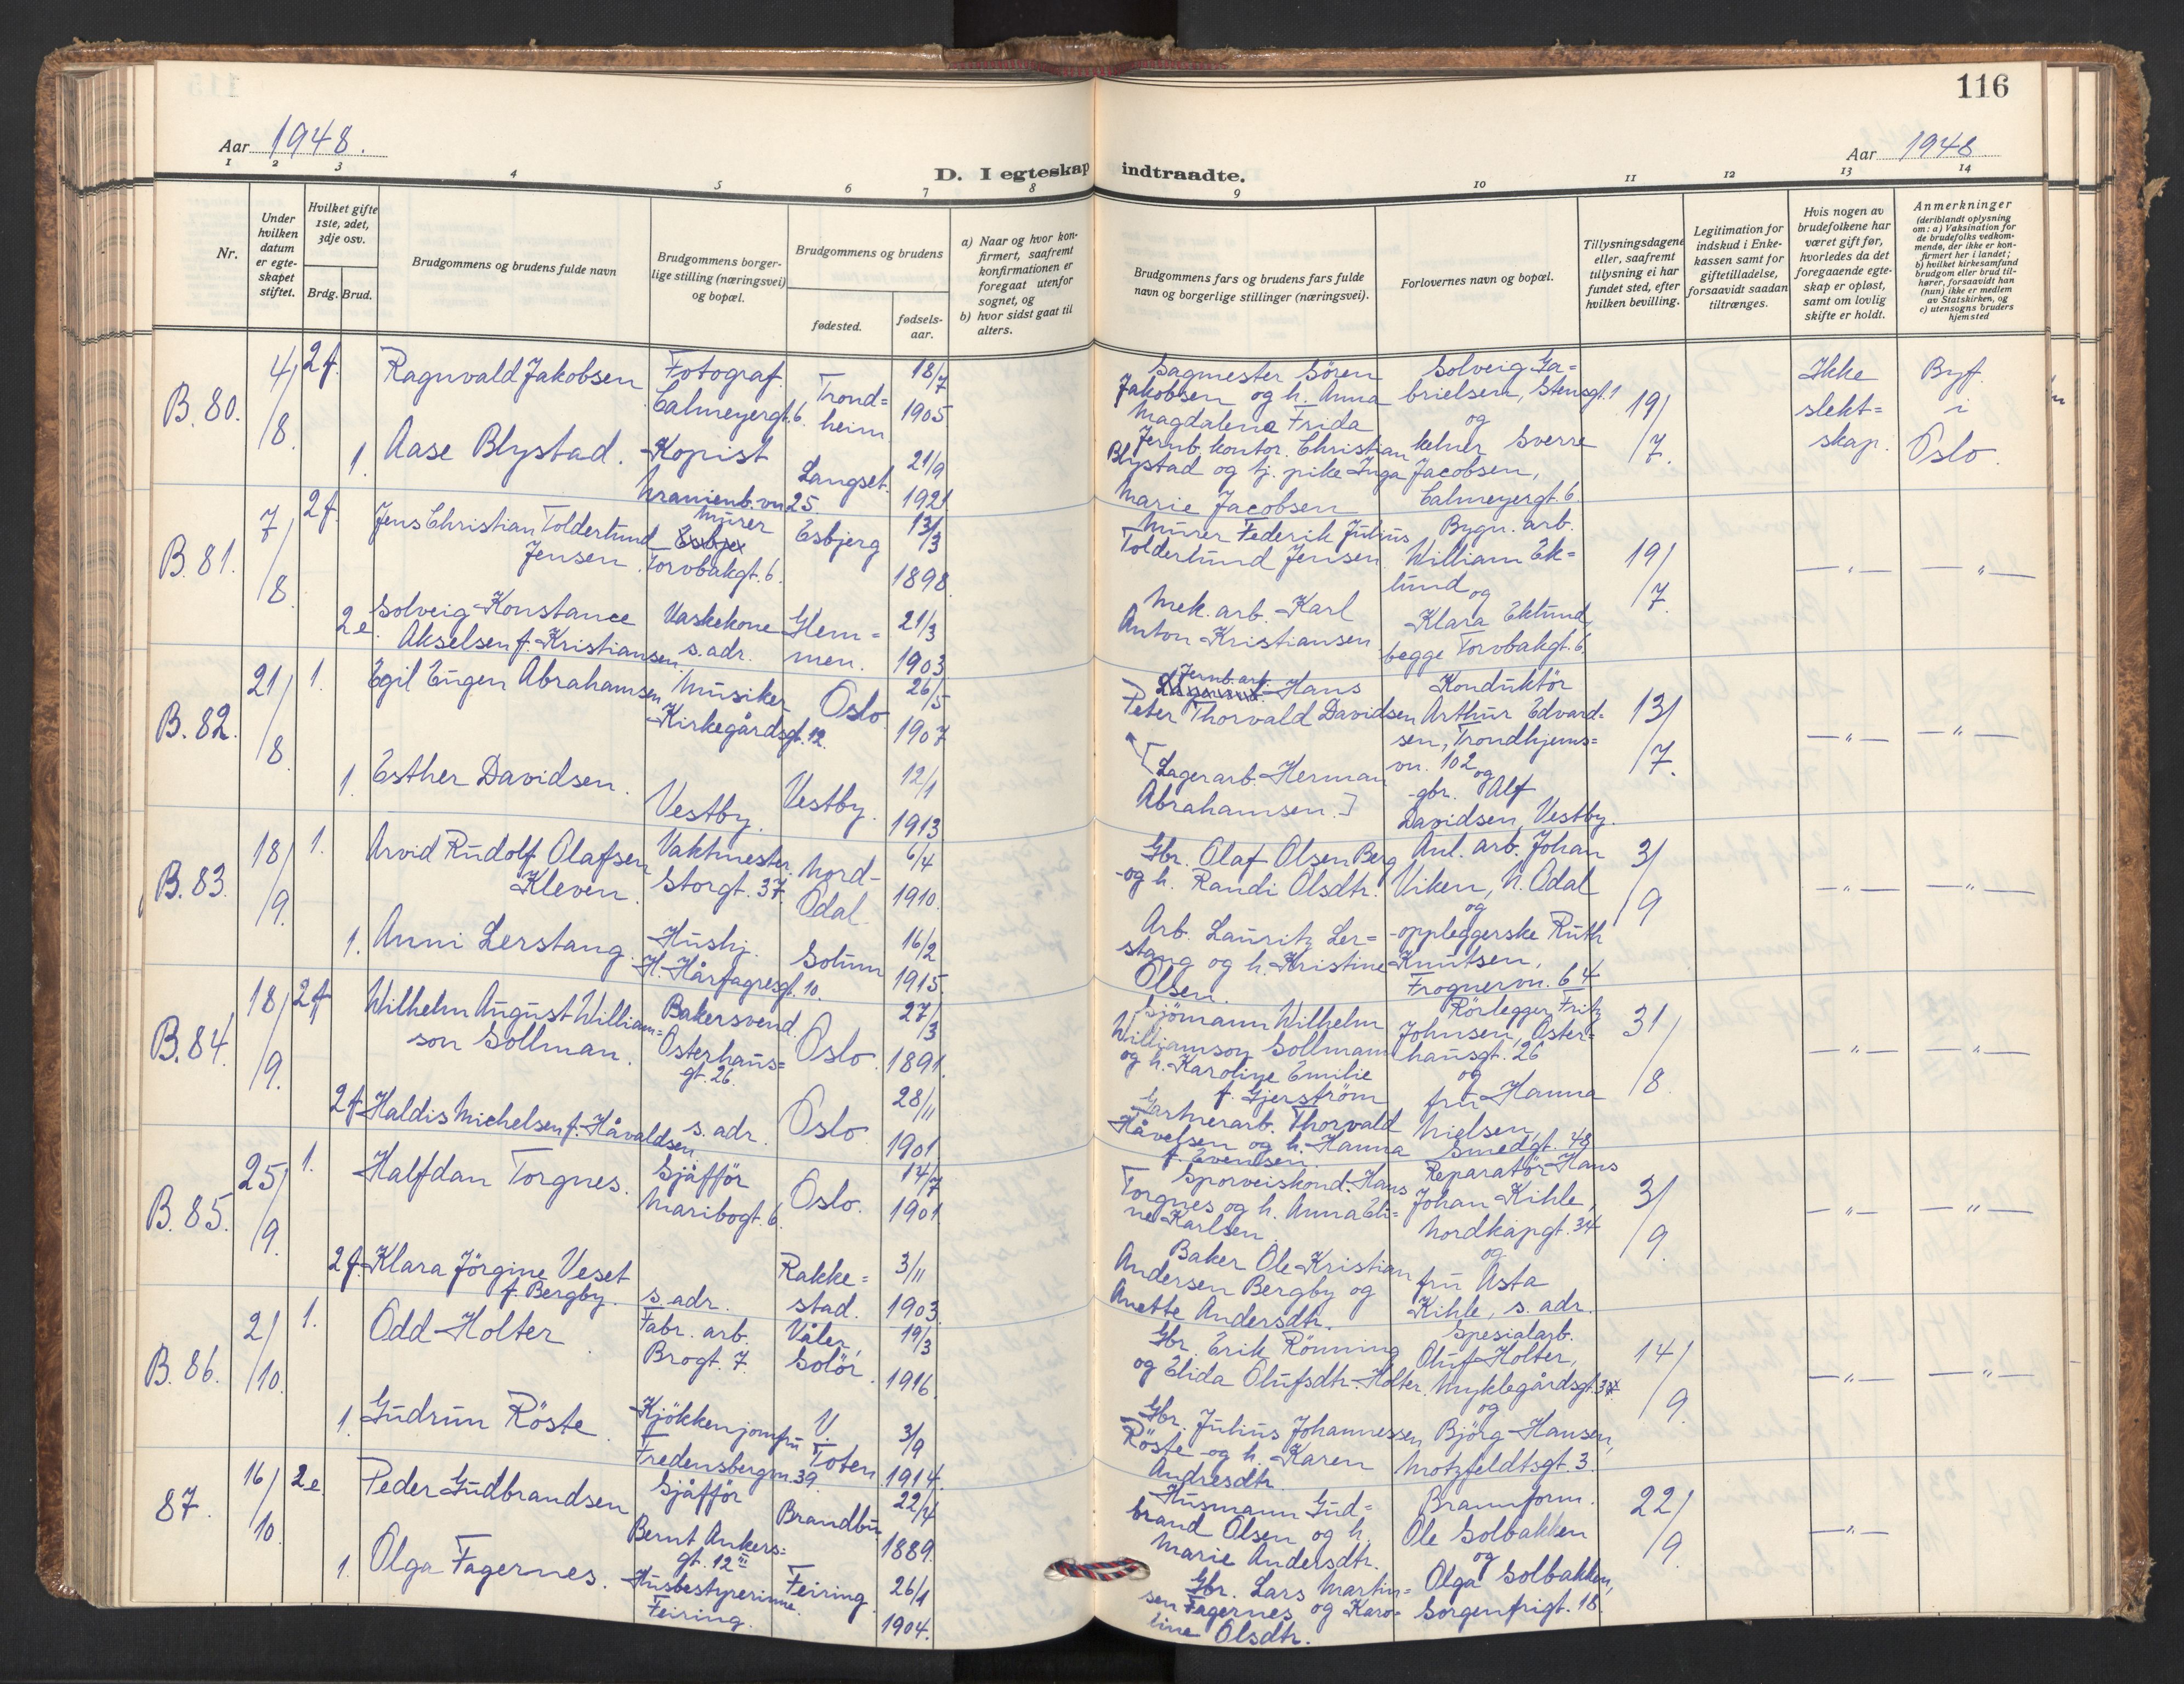 116
Aar 1948.
Aar 1948
D. I egteskap indtraadte.
1 2 3 4 5 6 7 8 9 10 11 12 13 14
Nr.
Under hvilken datum er egteskapet stiftet.
Hvilket gifte 1ste, 2det, 3dje osv.
Brdg. Brud.
Brudgommens og brudens fulde navn
Brudgommens borgerlige stilling (næringsvei) og bopæl.
Brudgommens og brudens
fødested.
fødselsaar.
a) Naar og hvor konfirmert, saafremt konfirmationen er foregaat utenfor sognet, og
b) hvor sidst gaat til alters.
Brudgommens fars og brudens fars fulde navn og borgerlige stillinger (næringsvei).
Forlovernes navn og bopæl.
Tillysningsdagene eller, saafremt tillysning ei har fundet sted, efter hvilken bevilling.
Legitimation for indskud i Enkekassen samt for giftetilladelse, forsaavidt saadan tiltrænges.
Hvis nogen av brudefolkene har været gift før, hvorledes da det foregaaende egteskap er opløst, samt om lovlig skifte er holdt.
Anmerkninger
(deriblandt oplysning om: a) Vaksination for de brudefolks vedkommende, der ikke er konfirmert her i landet; b) hvilket kirkesamfund brudgom eller brud tilhører, forsaavidt han (hun) ikke er medlem av Statskirken, og c) utensogns bruders hjemsted
B. 80.
4/8.
2f.
Ragnvald Jakobsen
Fotograf.
Calmeyergt. 6.
Trond=
heim
18/7
1905
1.
Aase Blystad.
Kopist
Uranienb. vn 25.
Langset.
21/9
1921
Sagmester Sören
Jakobsen og h. Anna
Magdalena Frida
Jernb. kontor. Christian
Blystad og tj. pike Inga
Marie Jacobsen
Solveig Ga=
brielsen, Stensgt. 1
og
kelner Sverre
Jacobsen,
Calmeyergt. 6.
19/7.
Ikke
slekt=
skap.
Byf.
i
Oslo.
B. 81.
7/8.
2f.
Jens Christian Tolderlund
Jensen.
Murer
Torvbakgt. 6.
Esbjerg
13/3
1898.
2e.
Solveig Konstance
Akselsen f. Kristiansen.
Vaskekone
s. adr.
Glem=
men.
21/3
1903
Murer Federik Julius
Tolderlund Jensen.
Mek. arb. Karl
Anton Kristiansen
Bygn. arb.
William Ek=
lund
og
Klara Eklund,
begge Torvbakgt. 6.
19/7.
— „ —
— „ —
B. 82.
21/8.
1.
Egil Eugen Abrahamsen
Musiker
Kirkegårdsgt. 12.
Oslo.
26/5
1907
1.
Esther Davidsen.
Vestby.
Vestby.
12/1
1913
Jernb. arb.
Hans
Peter Thorvald Davidsen
[Lagerarb. Herman
Abrahamsen.]
Konduktör
Arthur Edvard=
sen, Trondhjems=
vn. 102
og
gbr. Alf
Davidsen, Vestby.
13/7.
— „ —
— „ —
B. 83.
18/9.
1.
Arvid Rudolf Olafsen
Kleven.
Vaktmester.
Storgt. 37.
Nord-
Odal.
6/4
1910.
1.
Anni Lerstang.
Hushj.
H. Hårfagresgt. 10.
Solum
16/2
1915.
Gbr. Olaf Olsen Berg
og h. Randi Olsdtr.
Arb. Lauritz Ler=
stang og h. Kristine
Olsen.
Anl. arb. Johan
Viken, N. Odal
og
oppleggerske Ruth
Knutsen,
Frognervn. 64
3/9
— „ —
— „ —
B. 84.
18/9.
2f
Wilhelm August William=
son Sollman.
Bakersvend.
Osterhaus=
gt. 26.
Oslo.
27/3
1891.
2f.
Haldis Michelsen f. Håvaldsen.
s. adr.
Oslo
28/11
1901
Sjömann Wilhelm
Williamson Sollmann
og h. Karoline Emilie
f. Gjerström
Gartnerarb. Thorvald
Håvelsen og h. Hanna
f. Evensen.
Rörlegger Fritz
Johnsen, Oster=
hausgt. 26
og
fru Hanna
Nielsen,
Smedgt. 48
31/8.
— „ —
— „ —
B. 85.
25/9.
1.
Halfdan Torgnes.
Sjåffør
Maribogt. 6.
Oslo.
14/7
1901.
2f.
Klara Jörgine Veset
f. Bergby.
s. adr.
Rakke=
stad.
3/11
1903.
Sporveiskond. Hans
Torgnes og h. Anna Eli=
ne Karlsen.
Baker Ole Kristian
Andersen Bergby og
Anette Andersdtr.
Reparatör Hans
Johan Kihle,
Nordkapgt. 34
og
fru Asta
Kihle, s. adr.
3/9.
— „ —
— „ —
B. 86.
2/10.
1.
Odd Holter.
Fabr. arb.
Brogt. 7.
Våler,
Solör.
19/3
1916.
1.
Gudrun Röste.
Kjökkenjomfru
Fredensbergvn. 39.
V.
Toten
3/9
1914.
Gbr. Erik Rönning
og Elida Olufsdtr. Holter.
Gbr. Julius Johannessen
Röste og h. Karen
Andresdtr.
Spesialarb.
Oluf Holter,
Nyklegårdsgt.
og
Björg Hansen,
Motzfeldtsgt. 3.
14/9.
— „ —
— „ —
87.
16/10.
2e.
Peder Gudbrandsen
Sjåffør
Bernt Ankers=
gt. 12 III
Brandbu.
22/4
1889.
1.
Olga Fagernes.
Husbestyrerinne.
Feiring.
Feiring.
26/1
1904.
Husmann Gud=
brand Olsen og h.
Marie Andersdtr.
Gbr. Lars Martin=
sen Fagernes og Karo=
line Olsdtr.
Brannform.
Ole Solbakken
og
Olga Solbakken,
Sorgenfrigt. 18.
22/9.
— „ —